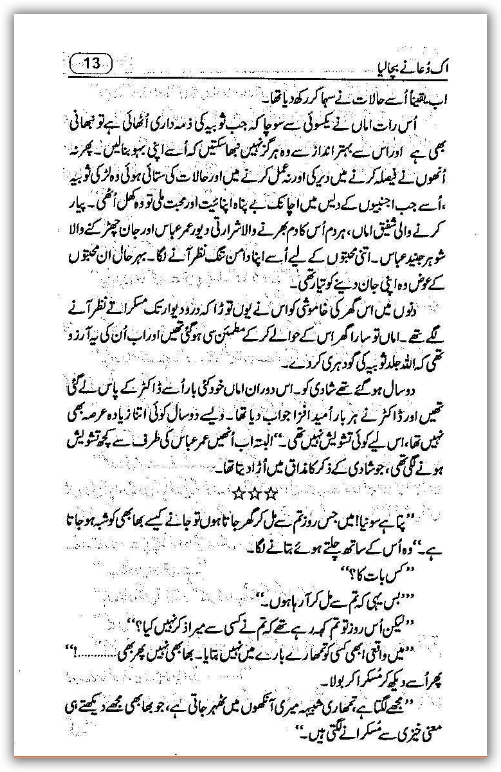 اک دُعا نے بچا لیا 13
اب یقیناً اُسے حالات نے سہما کر رکھ دیا تھا۔
اُس رات اماں نے یکسوئی سے سوچا کہ جب ثوبیہ کی ذمہ داری اُٹھائی ہے تو نبھانی
بھی ہے اور اس سے بہتر انداز سے وہ ہرگز نہیں نبھا سکتیں کہ اُسے اپنی بہو بنا لیں۔ پھر نہ
اُنھوں نے فیصلہ کرنے میں دیر کی اور نہ عمل کرنے میں اور حالات کی ستائی ہوئی وہ لڑکی ثوبیہ
، اُسے جب اجنبیوں کے دیس میں اچانک بے پناہ اپنائیت اور محبت ملی تو وہ کھل اُٹھی۔ پیار
کرنے والی شفیق اماں، ہر دم اُس کا دم بھرنے والا شرارتی دیور عمر عباس اور جان چھڑکنے والا
شوہر جنید عباس۔ اتنی محبتوں کے لیے اُسے اپنا دامن تنگ نظر آنے لگا۔ بہرحال ان محبتوں
کے عوض وہ اپنی جان دینے کو تیار تھی۔
دنوں میں اس گھر کی خاموشی کو اس نے یوں توڑا کہ در و دیوار تک مسکراتے نظر آنے
لگے تھے۔ اماں تو سارا گھر اِس کے حوالے کر کے مطمئن سی ہو گئی تھیں اور اب اُن کی یہ آرزو
تھی کہ اللہ جلد ثوبیہ کی گود ہری کر دے۔
دو سال ہو گئے تھے شادی کو۔ اس دوران اماں خود کئی بار اُسے ڈاکٹر کے پاس لے گئی
تھیں اور ڈاکٹر نے ہر بار اُمید افزا جواب دیا تھا۔ ویسے دو سال کوئی اتنا زیادہ عرصہ بھی
نہیں تھا، اس لیے کوئی تشویش نہیں تھی۔“ البتہ اب اُنھیں عمر عباس کی طرف سے کچھ تشویش
ہونے لگی تھی، جو شادی کے ذکر کا مذاق میں اُڑا دیتا تھا۔
☆☆☆
”پتا ہے سونیا! میں جس روز تم سے مل کر گھر جاتا ہوں تو جانے کیسے بھابھی کو شبہ ہو جاتا
ہے۔“ وہ اُس کے ساتھ چلتے ہوئے بتانے لگا۔
”کس بات کا؟“
”بس یہی کہ تم سے مل کر آ رہا ہوں۔“
”لیکن اُس روز تو تم کہہ رہے تھے کہ تم نے کسی سے میرا ذکر نہیں کیا؟“
”میں واقعی ابھی کسی کو تمھارے بارے میں نہیں بتایا۔ بھابھی نہیں پھر بھی..........!“
پھر اُسے دیکھ کر مسکرا کر بولا۔
”مجھے لگتا ہے، تمھاری شبیہہ میری آنکھوں میں ٹھہر جاتی ہے، جو بھابھی مجھے دیکھتے ہی
معنی خیزی سے مسکرانے لگتی ہیں۔“